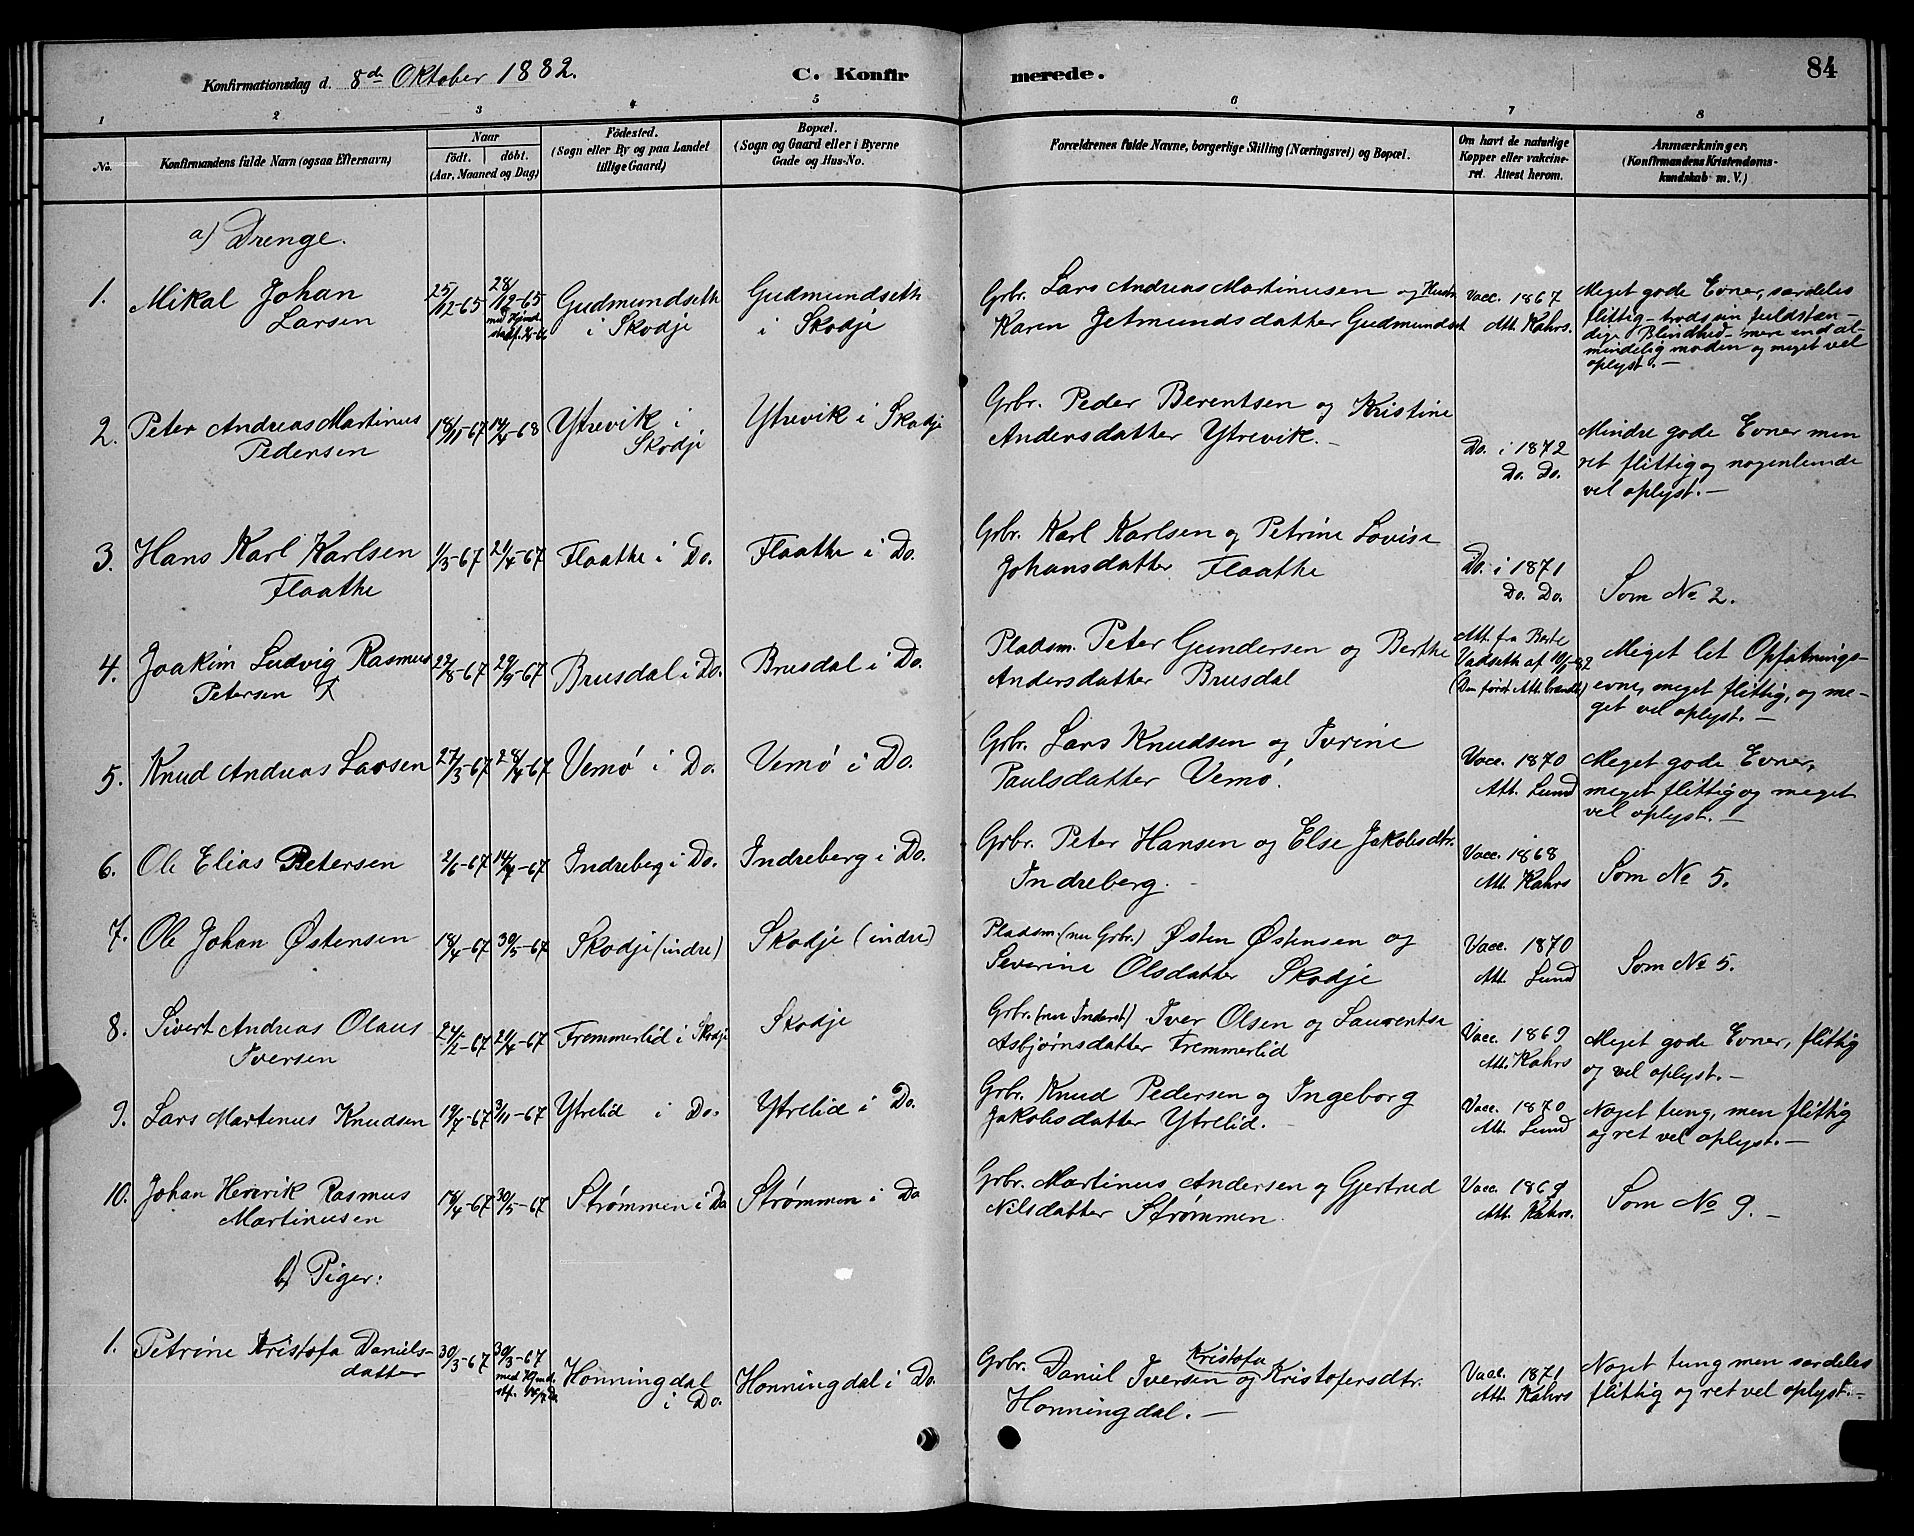 Konfirmationsdag d. 8de Oktober 1882.
C. Konfirmerede.
84
1 2 3 4 5 6 7 8
No.
Konfirmandens fulde Navn (ogsaa Efternavn)
Naar
födt. döbt.
(Aar, Maaned og Dag)
Födested.
(Sogn eller By og paa Landet
tillige Gaard)
Bopæl.
(Sogn og Gaard eller i Byerne
Gade og Hus-No.
Forældrenes fulde Navne, borgerlige Stilling (Næringsvei) og Bopæl.
Om havt de naturlige
Kopper eller vakcine-
ret. Attest herom.
Anmærkninger.
(Konfirmandens Kristendoms-
kundskab m. V.)
a) Drenge.
1. Mikal Johan
Larsen
25/12-65
28/12-65
Gudmundseth
i Skodje
Gudmundseth
i Skodje
Grbr. Lars Andreas Martinusen og Hustru
Karen Jetmundsdatter Gudmundset
Vacc. 1867
Att. Kahrs.
Meget gode Evner, særdeles
flittig - trods sin fuldstæn-
dige Blindhed - mere end al-
mindelig moden og meget vel
oplyst. -
2. Peter Andreas Martinus
Pedersen
18/11-67
Ytrevik i
Skodje
Ytrevik i Skodje
Grbr. Peder Berentsen og Kristine
Andersdatter Ytrevik. -
Do. i 1872
Do. Do.
Mindre gode Evner men
ret flittig og nogenlunde
vel oplyst. -
3. Hans Karl Karlsen
Flaathe
1/3-67
21/4-67
Flaathe i Do.
Flaathe i Do.
Grbr. Karl Karlsen og Petrine Lovise
Johansdatter Flaathe
Do. i 1871
Do. Do.
Som No 2.
4. Joakim Ludvig Rasmus
Petersen
22/8-67
29/9-67
Brusdal i Do.
Brusdal i Do.
Pladsm. Peter Gundersen og Berthe
Andersdatter Brusdal
Att. fra Berte
Vadseth af 10/1-82
(Den først Att. brændt)
Meget let Opfatnings-
evne, meget flittig, og me-
get vel oplyst. -
5. Knud Andreas Larsen
27/3-67
28/4-67
Vemø i Do.
Vemø i Do.
Grbr. Lars Knudsen og Ivrine
Paulsdatter Vemø.
Vacc. 1870
Att. Lund
Meget gode Evner,
meget flittig og meget
vel oplyst. -
6. Ole Elias Petersen
2/1-67
14/4-67
Indreberg i Do.
Indreberg i Do.
Grbr. Peter Hansen og Else Jakobsdtr.
Indreberg.
Vacc. 1868
Att. Kahrs
Som No 5.
7. Ole Johan Østensen
18/4-67
30/5-67
Skodje (indre)
Skodje (indre)
Pladsm. (nu Grbr.) Østen Østensen og
Severine Olsdatter Skodje
Vacc. 1870
Att. Lund
Som No 5.
8. Sivert Andreas Olaus
Iversen
24/2-67
21/4-67
Fremmerlid i Skodje
Skodje
Grbr. (nu Inderst) Iver Olsen og Laurentse
Asbjørnsdatter Fremmerlid
Vacc. 1869
Att. Kahrs
Meget gode Evner, flittig
og vel oplyst. -
9. Lars Martinus Knudsen
19/7-67
3/11-67
Ytrelid i Do.
Ytrelid i Do.
Grbr. Knud Pedersen og Ingeborg
Jakobsdatter Ytrelid.
Vacc. 1870
Att. Lund
Noget tung, men flittig
og ret vel oplyst. -
10. Johan Henrik Rasmus
Martinusen
18/4-67
30/5-67
Strømmen i Do
Strømmen i Do
Grbr. Martinus Andersen og Gjertrud
Nilsdatter Strømmen.
Vacc. 1869
Att. Kahrs.
Som No 9. -
b) Piger:
1. Petrine Kristofa Daniels-
datter
30/3-67
30/3-67
Honningdal
i Do.
Honningdal i Do.
Kristofa
Grbr. Daniel Iversen og Kristofersdtr.
Honningdal. -
Vacc. 1871
Att. Kahrs
Noget tung men særdeles
flittig og ret vel oplyst. -